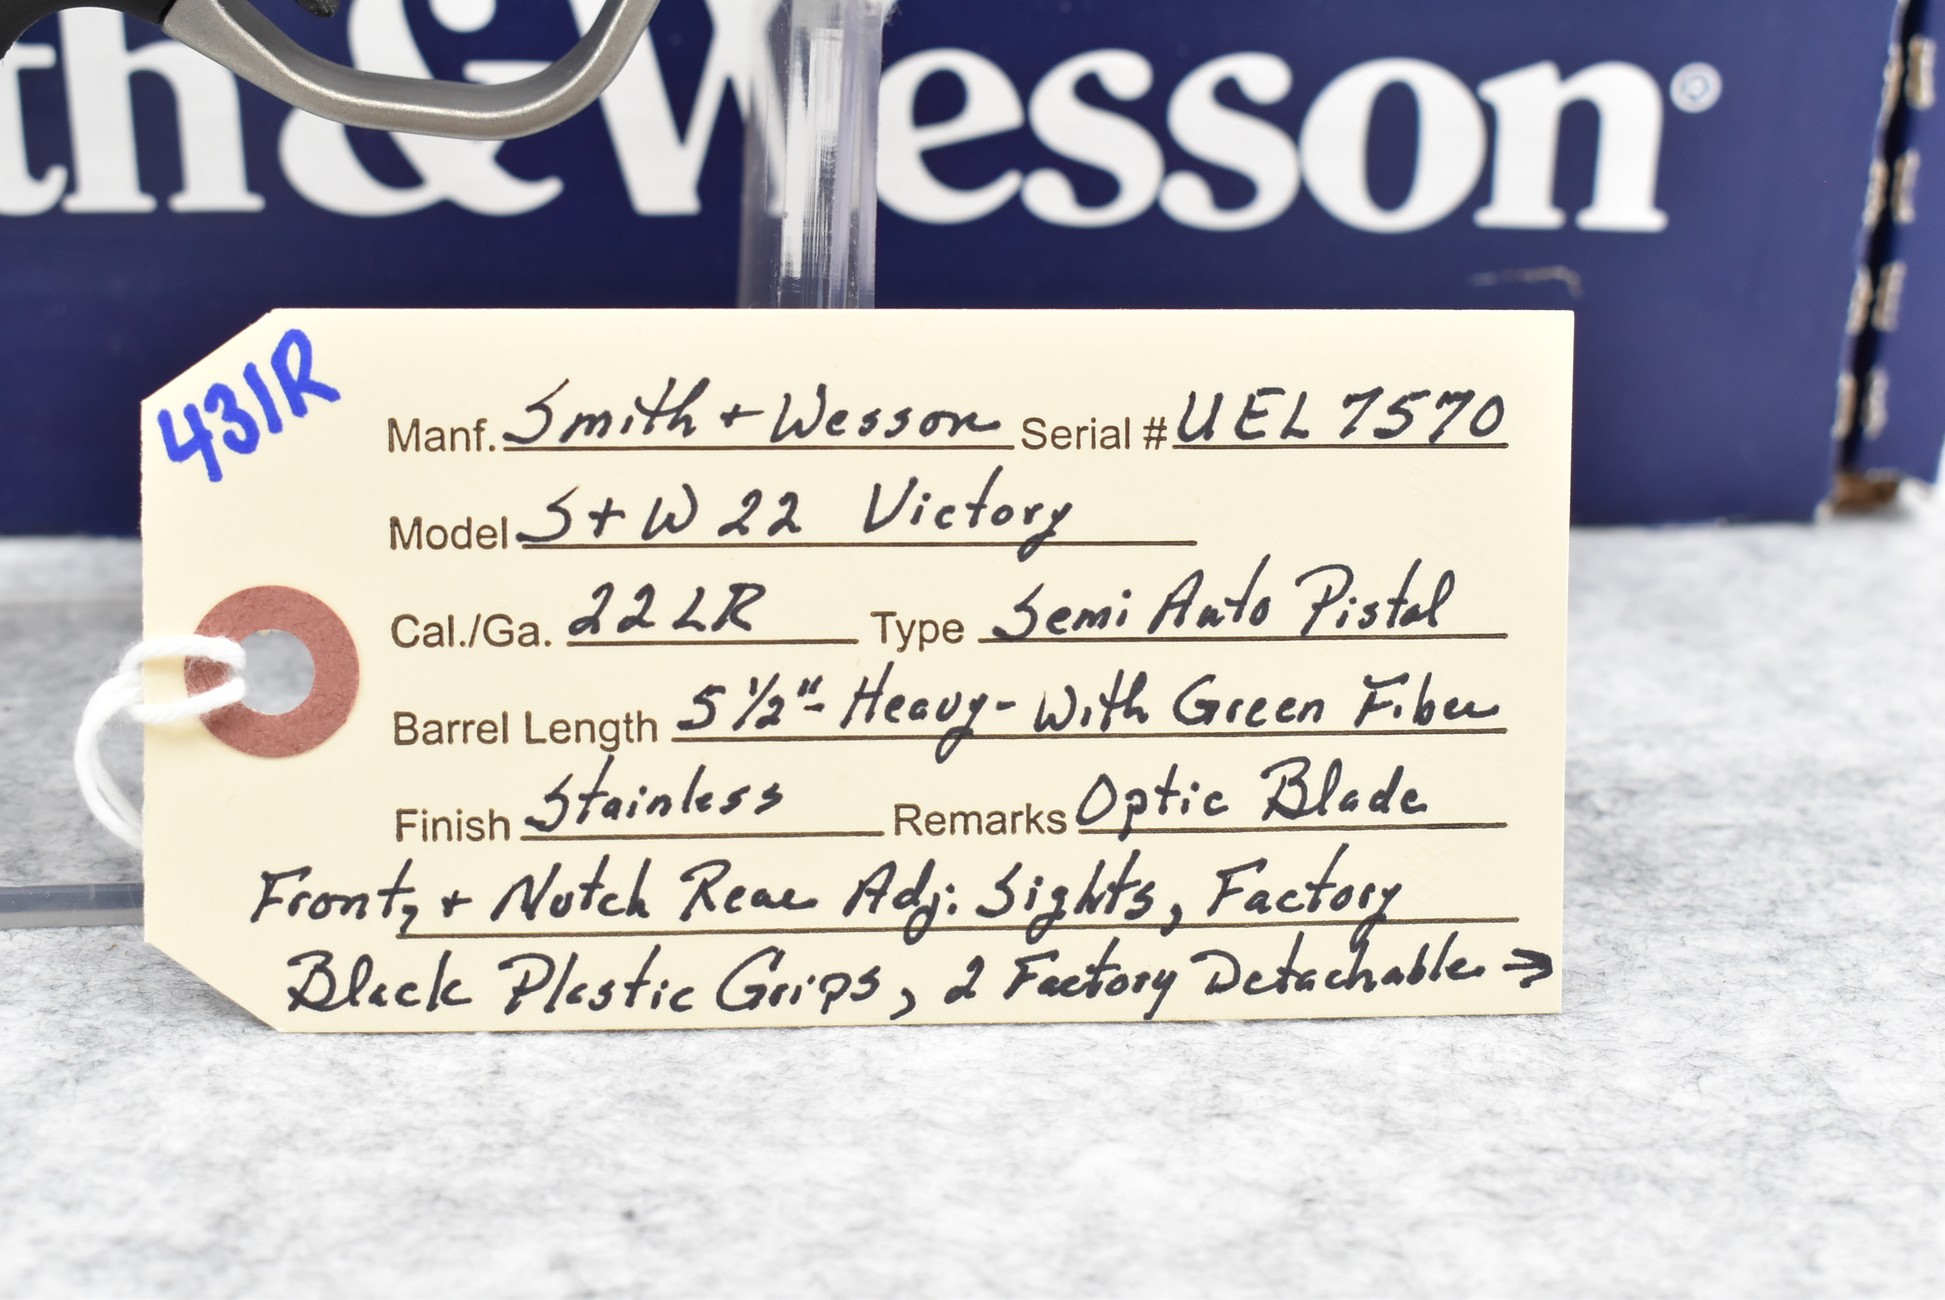 th & Wesson®
431R
Manf. Smith + Wesson Serial # UEL 7570
Model S+W 22 Victory
Cal./Ga. 22 LR Type Semi Auto Pistol
Barrel Length 5 1/2" - Heavy - With Green Fiber
Finish Stainless Remarks Optic Blade
Front, + Notch Rear Adj. Sights, Factory
Black Plastic Grips, 2 Factory Detachable →